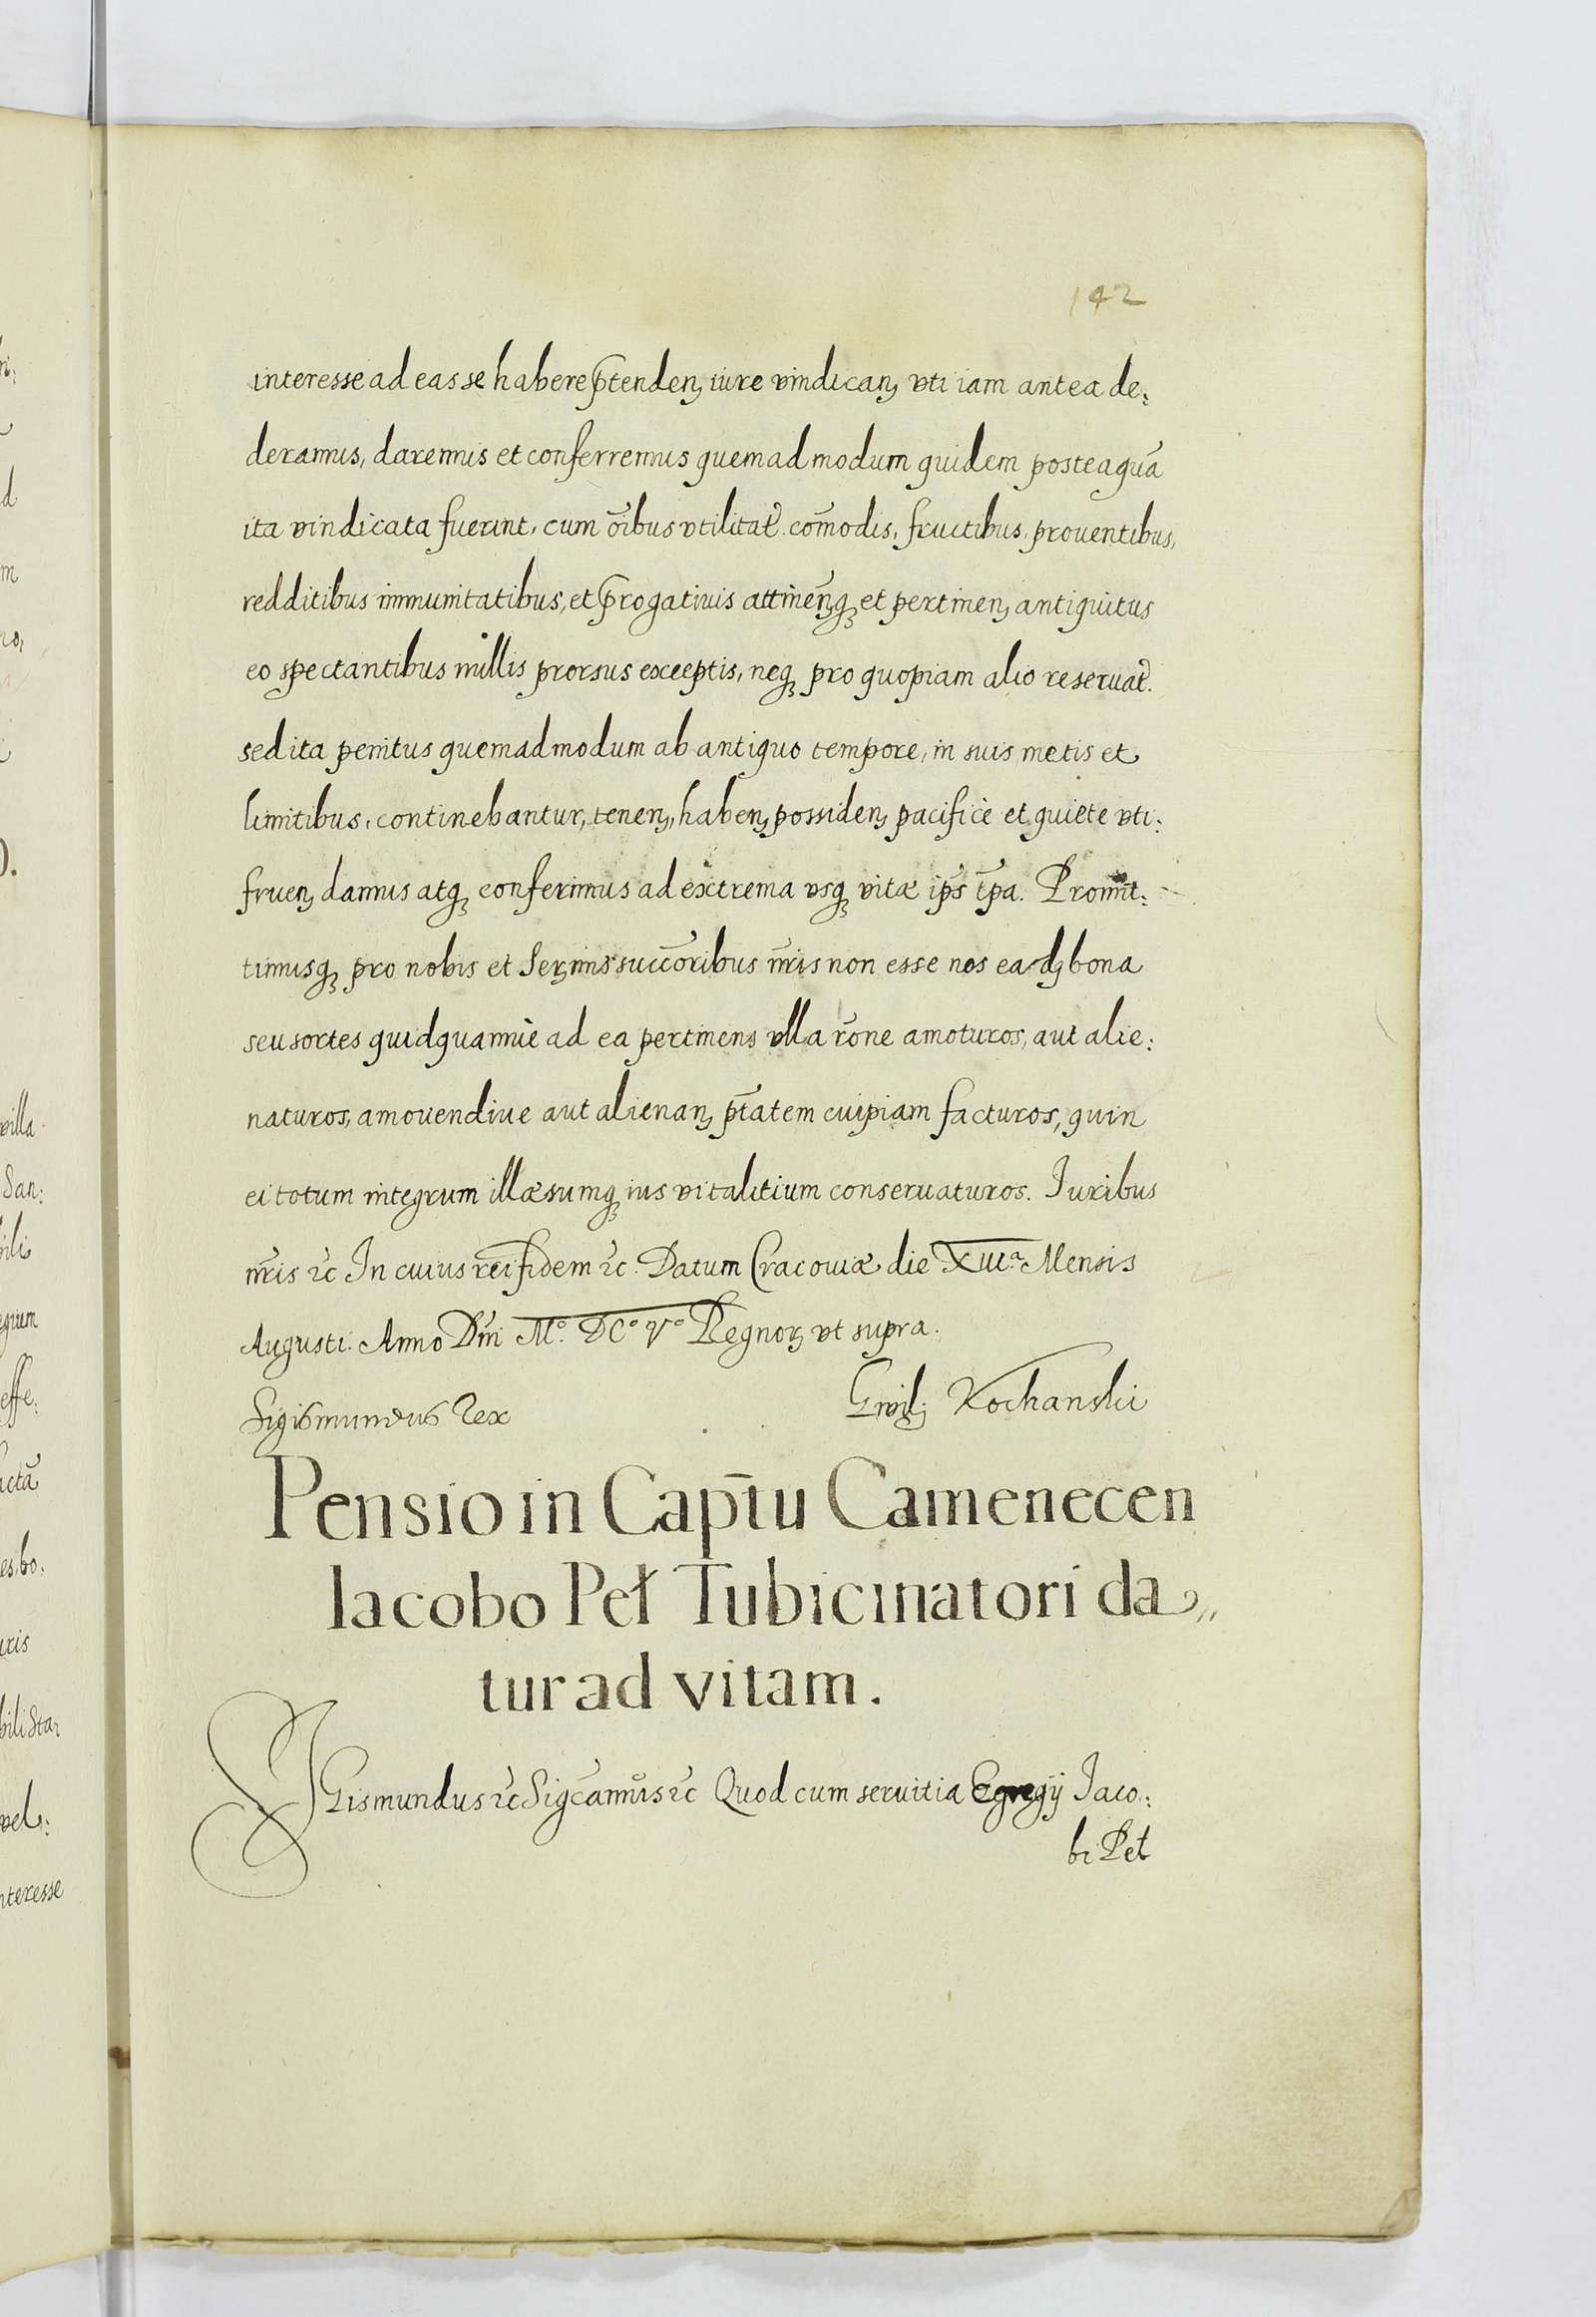 142
interesse ad eas se habere p̃tenden̨ iure vindican̨ vti iam antea de:
deramus, daremus et conferremus quemadmodum quidem posteaquã
ita vindicata fuerint, cum õibus vtilitat̃. com̃odis, fructibus, prouentibus,
redditibus immunitatibus, et p̃rogatiuis attineñ qꝫ et pertinen̨ antiquitus
eo spectantibus nullis prorsus exceptis, neqꝫ pro quopiam alio reseruat̃.
sed ita penitus quemadmodum ab antiquo tempore, in suis metis et
limitibus, continebantur, tenen̨, haben̨ possiden̨ pacificè et quiete vti:
fruen̨ damus atqꝫ conferimus ad extrema vsqꝫ vitæ ip̃s tp̃a. Promit:
timusqꝫ pro nobis et Serꝫmis succ̃oribus nr̃is non esse nos eadꝫ bona
seu sortes quidquamuè ad ea pertinens vlla rõne amoturos, aut alie:
naturos, amouendiue aut alienan̨ pt̃atem cuipiam facturos, quin
ei totum integrum illæsumqꝫ ius vitalitium conseruaturos. Iuribus
nr̃is ꝛc̃ In cuius rei fidem ꝛc̃. Datum Cracouiæ die XIIIᵃ Mensis
Augusti. Anno Dñi Mº. DCº Vº Regnorꝫ vt supra.
Sigismundus Rex
Kochanski
Pensio in Capt̃u Camenecen
Iacobo Peł Tubicinatori da„
tur ad vitam.
SIGismundus ꝛc̃ Sigc̃amus ꝛc̃ Quod cum seruitia Egregij Iaco:
bi Peł
ni:
d
m
no,
).
villa
San:
bili
egium
effe:
actã
es, bo:
uris
bili Sta
vel:
nteresse